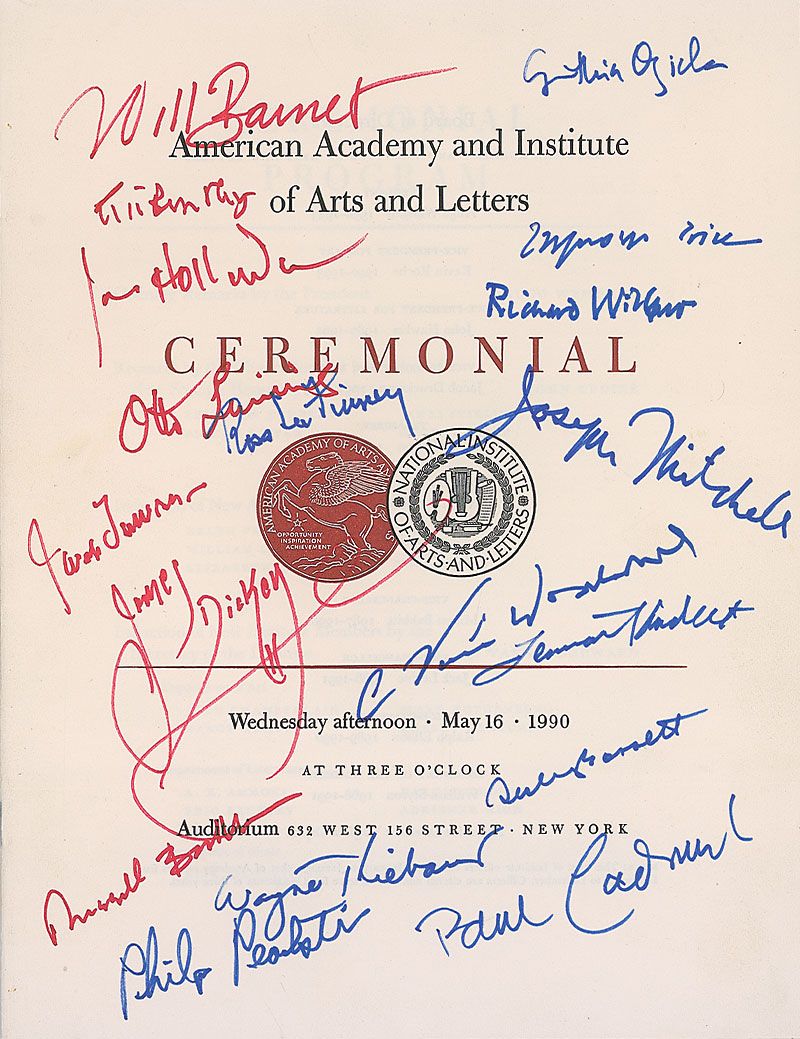 Cynthia Ozick
Will Barnet
American Academy and Institute
of Arts and Letters
Richard Wilbur
CEREMONIAL
Otto Luening
Ross Lee Finney
Joseph Mitchell
AMERICAN ACADEMY OF ARTS AN
NATIONAL INSTITUTE
OF·ARTS·AND·LETTERS
OPPORTUNITY
INSPIRATION
ACHIEVEMENT
James Dickey
C Vann Woodward
Wednesday afternoon · May 16 · 1990
AT THREE O'CLOCK
Auditorium 632 WEST 156 STREET · NEW YORK
Russell Banks
Wayne Thiebaud
Philip Pearlstein
Paul Cadmus